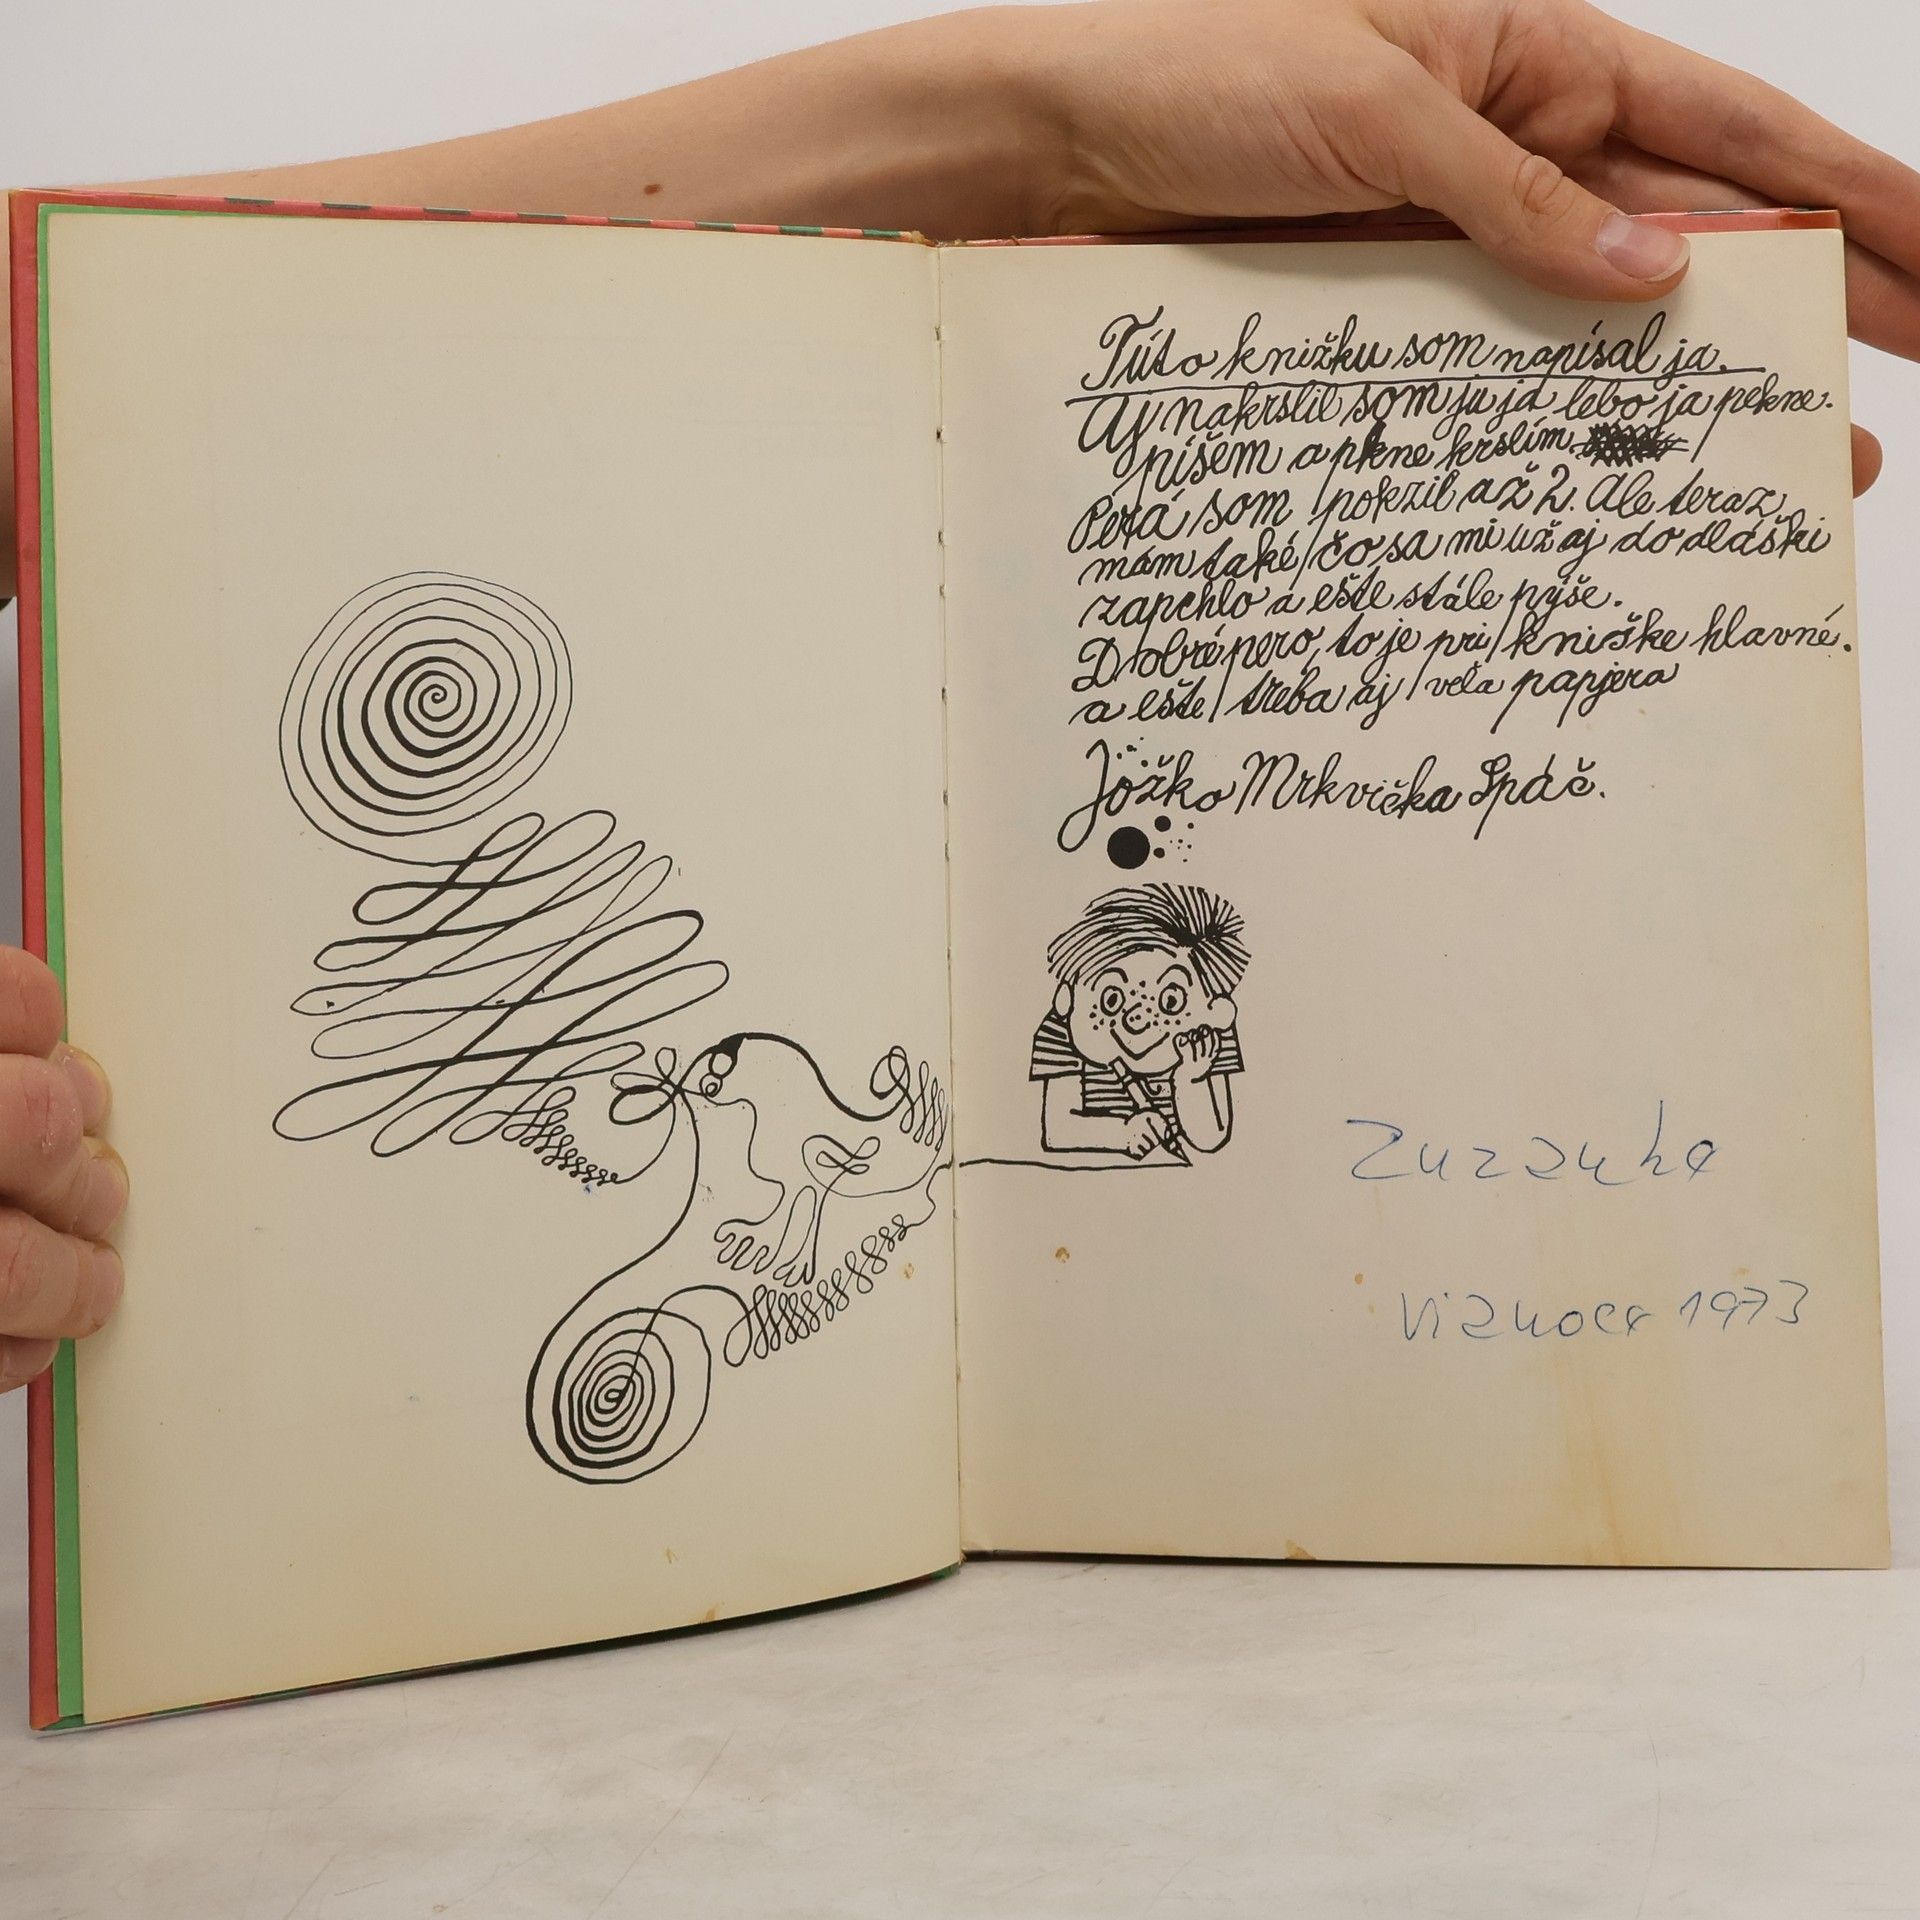 Túto knižku som napísal ja.
Aj nakrslil som ju ja lebo ja pekne.
píšem a pkne krslím
Perá som pokzil až 2. Ale teraz
mám také čo sa mi už aj do dláški
zapchlo a ešte stále pýše.
Dobré pero, to je pri kniške hlavné.
a ešte treba aj vela papjera
Jožko Mrkvička Spáč.
Zuzzuka
Vianoce 1973